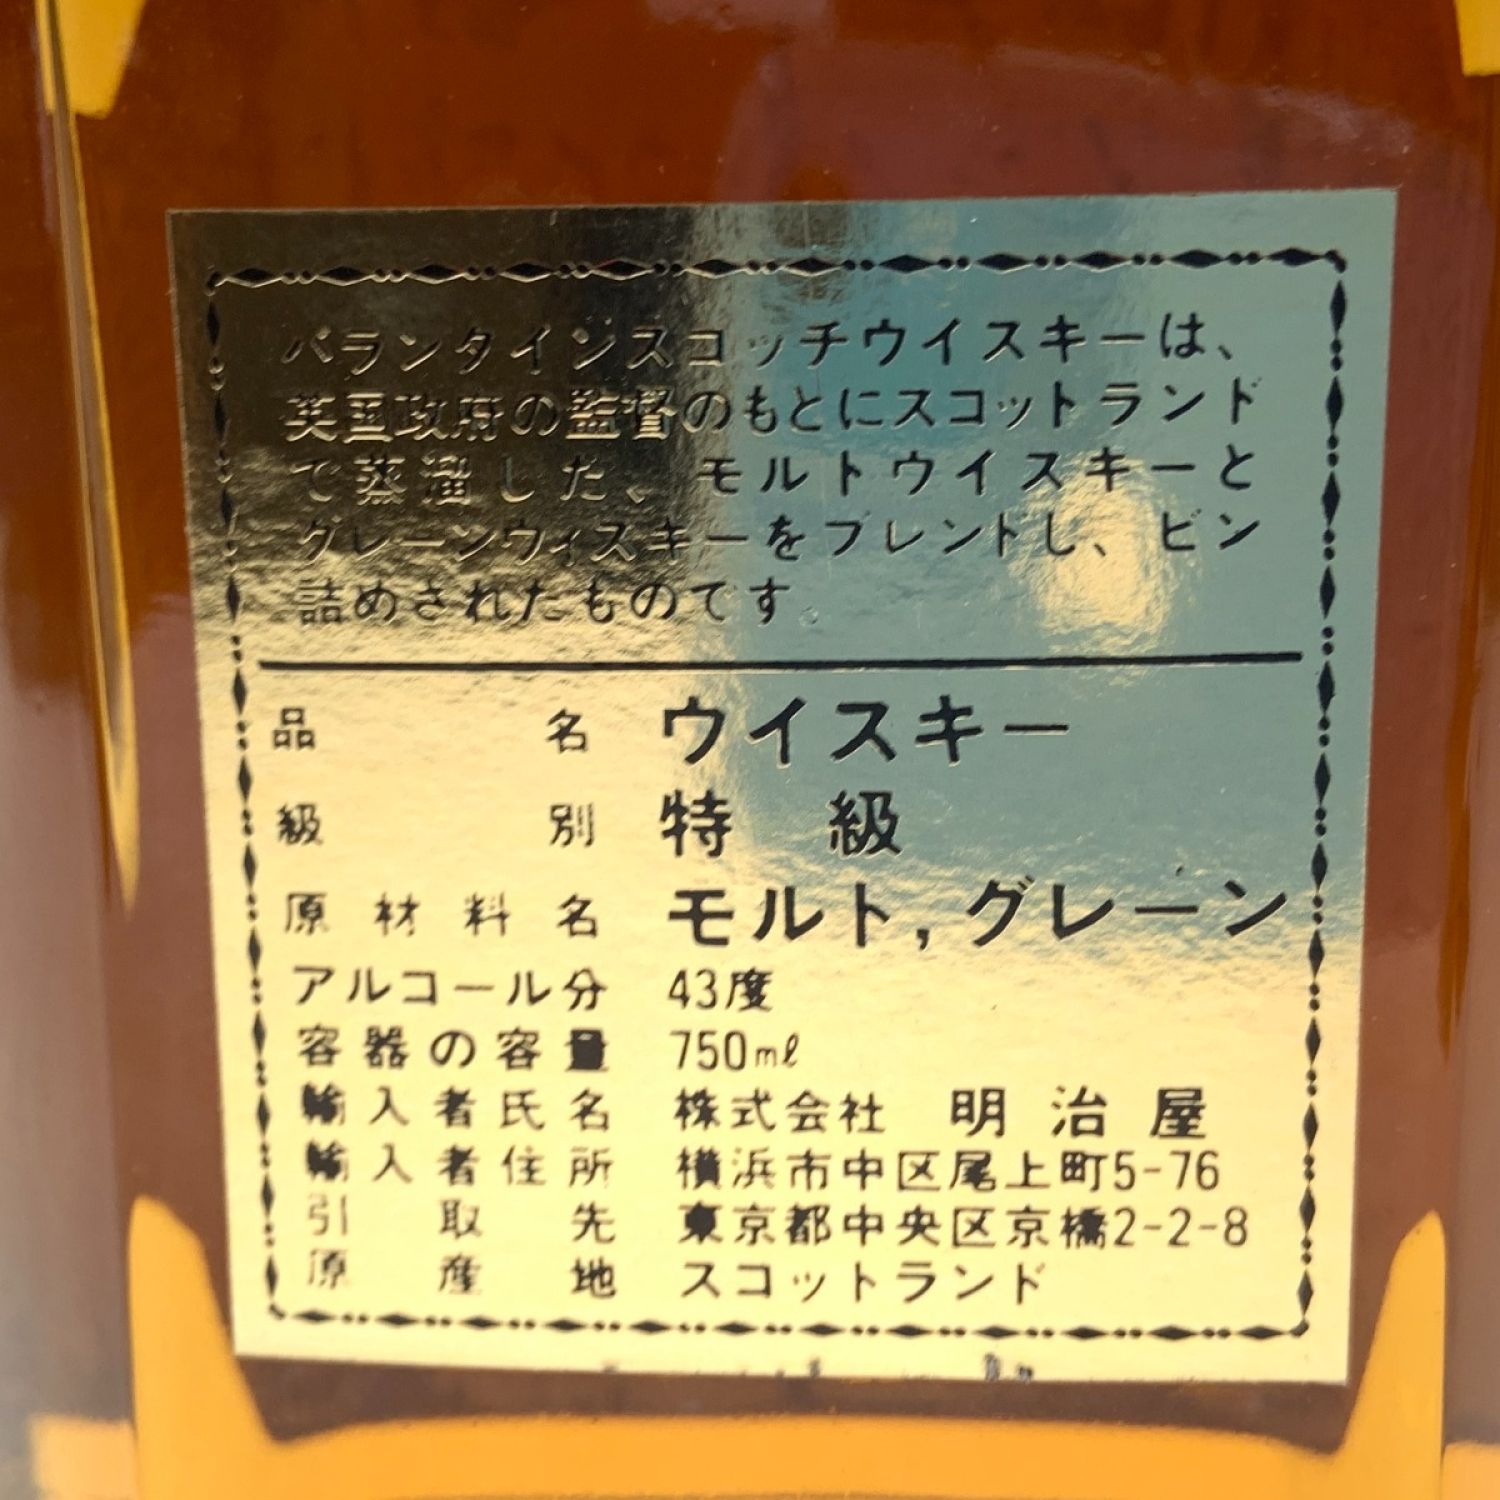 バランタインスコッチウイスキーは、
英国政府の監督のもとにスコットランド
で蒸溜した、モルトウイスキーと
グレーンウィスキーをブレントし、ビン
詰めされたものです。
品名 ウイスキー
級別 特級
原材料名 モルト,グレーン
アルコール分 43度
容器の容量 750mℓ
輸入者氏名 株式会社 明治屋
輸入者住所 横浜市中区尾上町5-76
引取先 東京都中央区京橋2-2-8
原産地 スコットランド